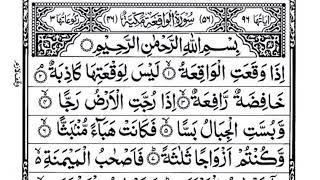 اٰيَاتُهَا ٩٦ (٥٦) سُوْرَةُ الْوَاقِعَةِ مَكِّيَّةٌ (٤٦) رُكُوْعَاتُهَا ٣
بِسْمِ اللّٰهِ الرَّحْمٰنِ الرَّحِيْمِ
اِذَا وَقَعَتِ الْوَاقِعَةُ ۙ١ لَيْسَ لِوَقْعَتِهَا كَاذِبَةٌ ۘ٢
خَافِضَةٌ رَّافِعَةٌ ۙ٣ اِذَا رُجَّتِ الْاَرْضُ رَجًّا ۙ٤
وَّبُسَّتِ الْجِبَالُ بَسًّا ۙ٥ فَكَانَتْ هَبَآءً مُّنْۢبَثًّا ۙ٦
وَّكُنْتُمْ اَزْوَاجًا ثَلٰثَةً ؕ٧ فَاَصْحٰبُ الْمَيْمَنَةِ ۙ۬